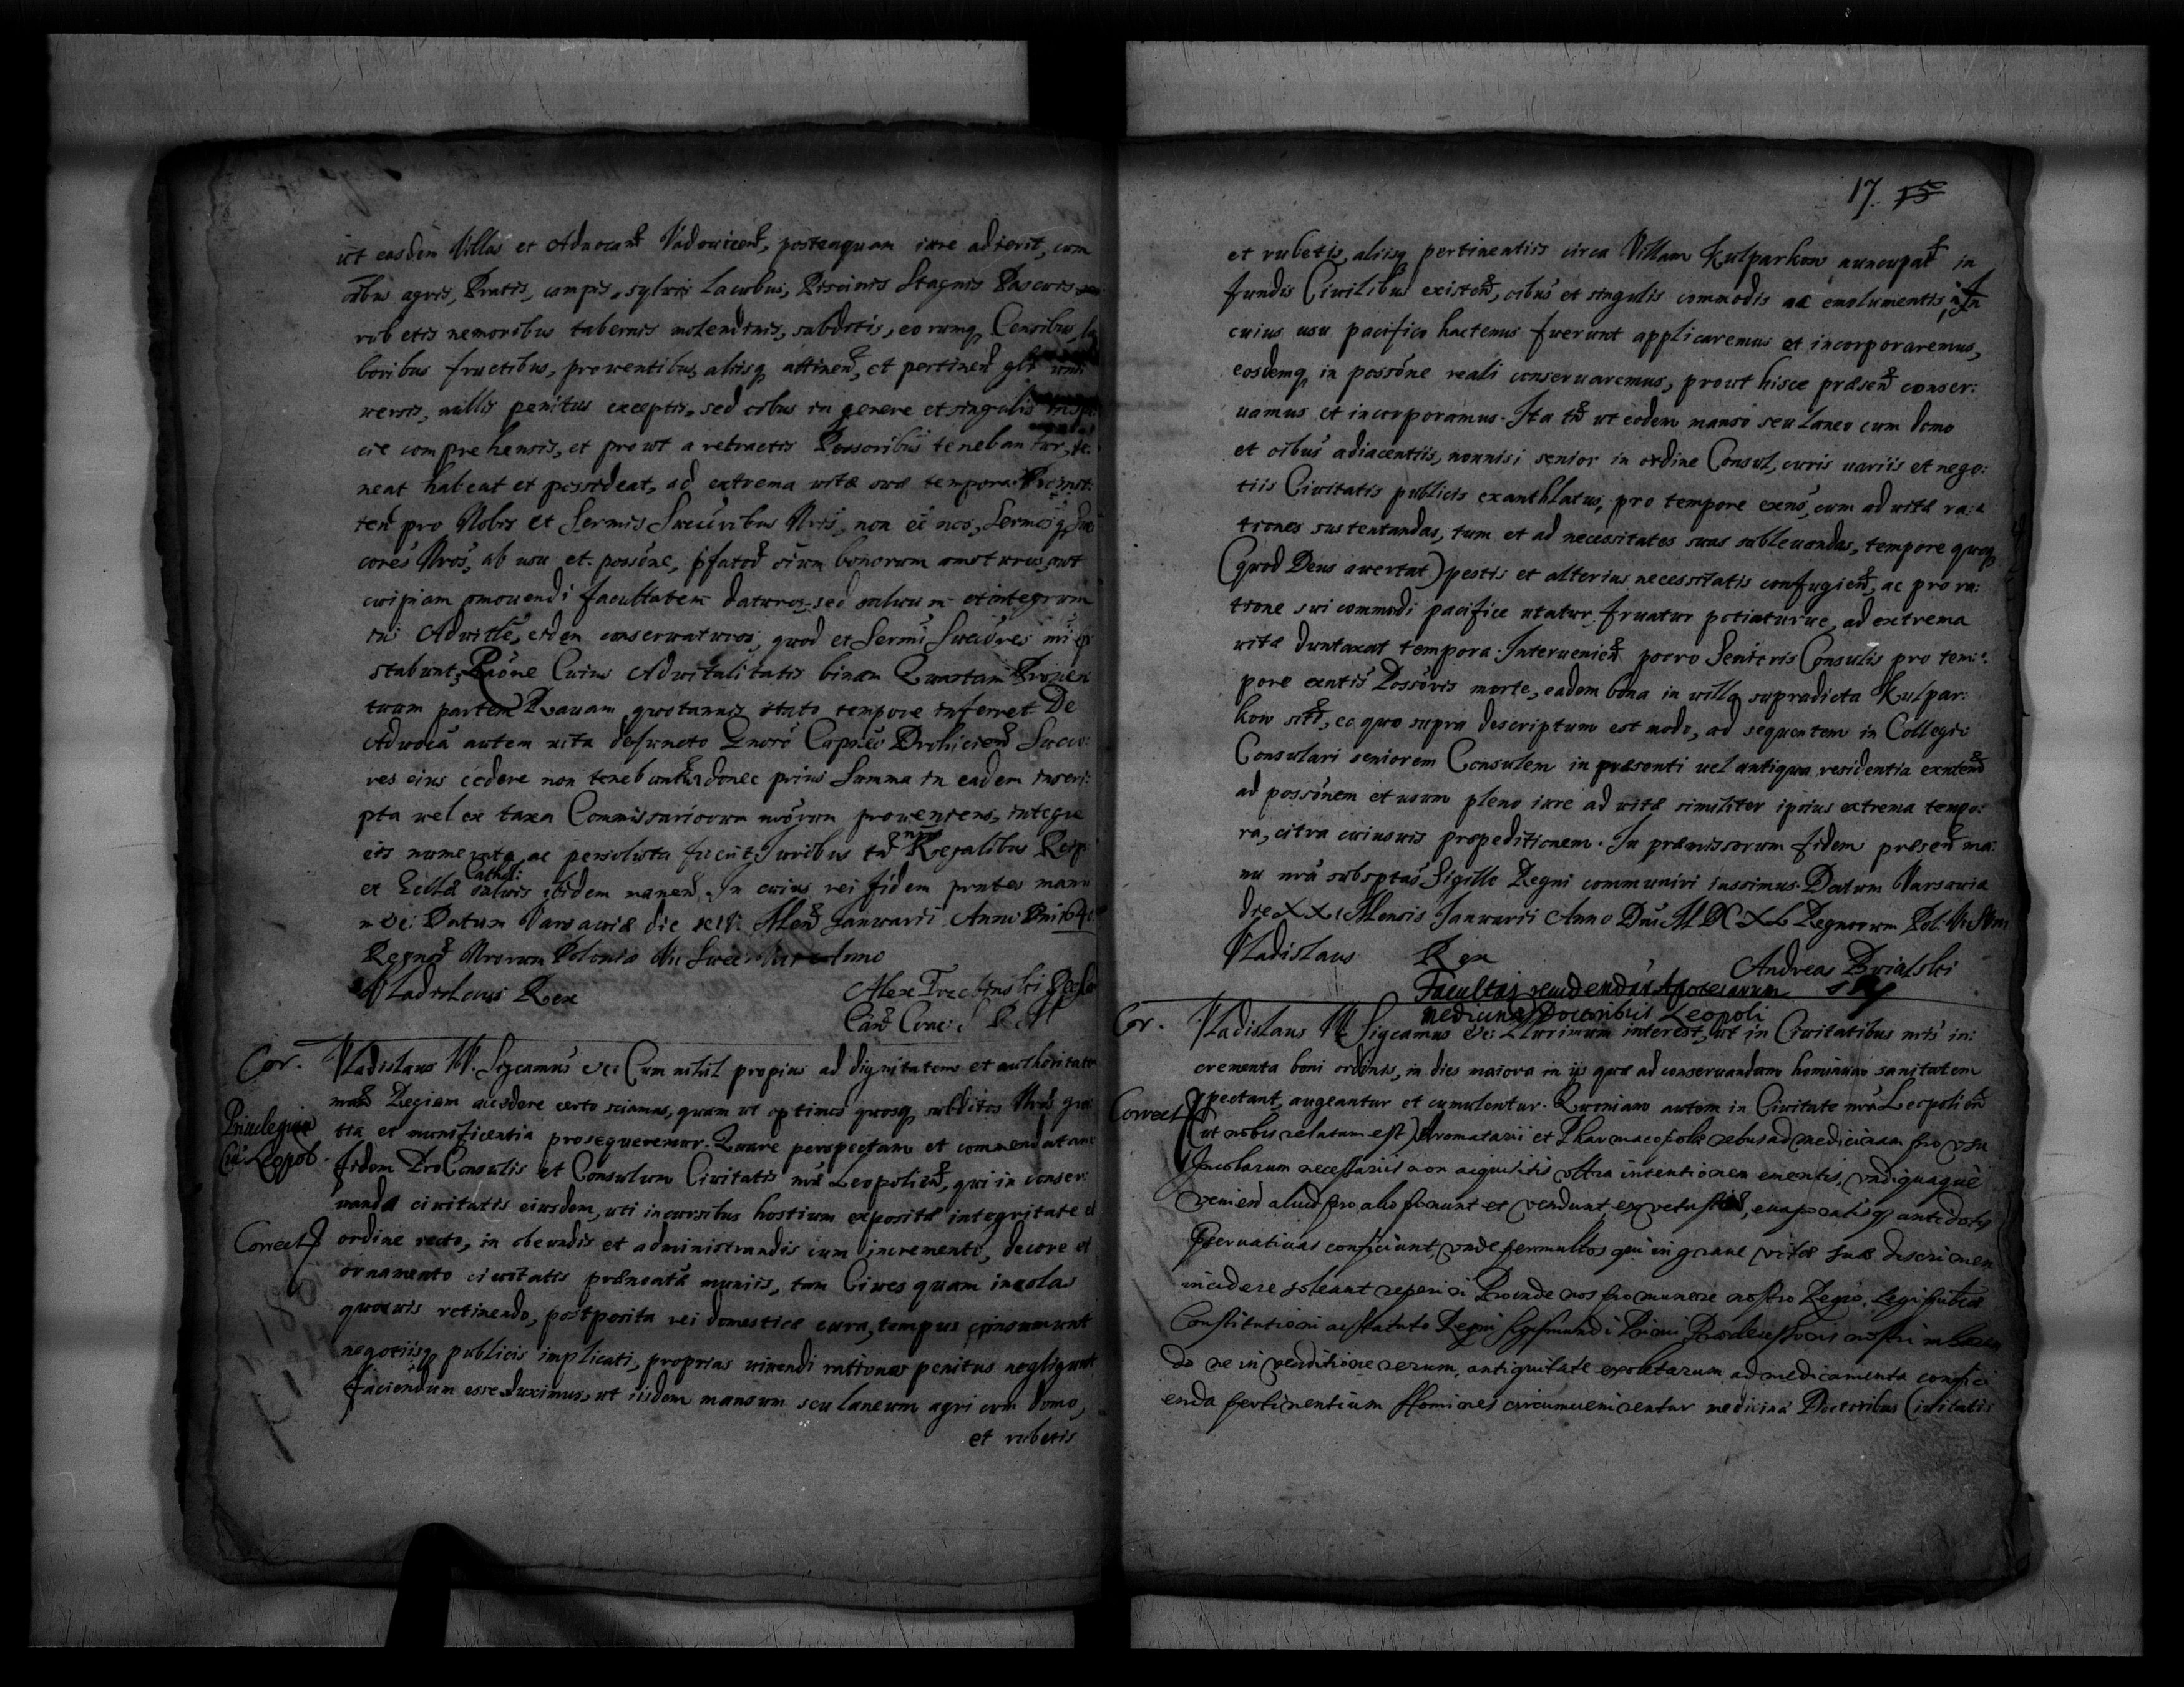 ut easdem Villas et Advocatñ Vadovicen̄, posteaquam iure adierit, cum
oībus agris, Pratis, campis, sylvis Lacubus, Piscinis Stagnis Pascuis
rubetis nemoribus tabernis molendinis, subditis, eorumq Censibus, la
boribus fructibus, proventibus, aliisq attinen̄, et pertinen̄ glr uni
versis, nullis penitus exceptis, sed oībus in genere et singulis in spe
cie comprehensis, et prout a retroactis Possoribus tenebantur, te
neat habeat et possideat, ad extrema vitæ suæ tempora.
ten pro Nobis et Sermis Succribus Nris, non ēē nos, Sermosq Suc
cores Nros, ab usu et possōne, pfator oīum bonorum amoturos, aut
cuipiam amovendi facultatem daturos, sed salvum et integrum
ius Advitle, eidem conservaturos, quod et Sermi Succores nri
stabunt, Raōne Cuius Advitalitatis binam Quartam Proven
tuum partem Ravam quotannis stato tempore inferret De
Advocā autem vita defuncto Gnoso Capneo Drohicien̄ Succes
res eius cedere non tenebuntur donec prius Summa in eadem inscri:
pta vel ex taxa Commissariorum nrōrum proveniens, integre
eis numerata ac persoluta fuerit, Iuribus tn̄ nris Regalibus Reip
et Ecclæ Cathol: salvis ibidem manen̄. In cuius rei fidem prntes manu
n &c: Datum Varsaviæ die XIV Mens Januarii Anno Dni 1640
Regnor Nrorum Poloniæ VIII Sueciæ
Vladislaus Rex
Alex Trzebinski
Cor. Vladislaus IV. Sigcamus &c: Cum nihil propius ad dignitatem et authoritatem
nram Regiam accedere certo sciamus, quam ut optimos quosq subditos Nros gra
Privilegium
tia et munificentia prosequeremur. Quare perspectam et commendatam
Ciu: Leopol.
fidem Pro Consulis et Consulum Civitatis nræ Leopolien̄, qui in conser
vanda civitatis eiusdem, uti incursibus hostium expositæ integritate et
Correct
ordine recto, in obeundis et administrandis cum incremento, decore et
ornamento civitatis prænotatæ muniis, tam Cives quam incolas
quosvis retinendo, postposita rei domesticæ cura, tempus consumunt
negotiisq publicis implicati, proprias vivendi rationes penitus negligunt
faciendum esse duximus, ut iisdem mansum seu laneum agri cum domo,
et rubetis
17. 15
et rubetis, aliisq pertinentiis circa Villam Kulparkow nuncupat in
fundis Civilibus existen̄, oībus et singulis commodis ac emolumentis, in
cuius usu pacifico hactenus fuerunt applicaremus et incorporaremus,
eosdemq in possōne reali conservaremus, prout hisce præsen̄ conser:
vamus et incorporamus. Ita tn̄ ut eodem manso seu laneo cum domo
et oībus adiacentiis, nonnisi senior in ordine Consul, curis variis et nego:
tiis Civitatis publicis exanthlatus, pro tempore exens, cum ad vitæ ra:
tiones sustentandas, tum et ad necessitates suas sublevandas, tempore quoq
(quod Deus avertat) pestis et alterius necessitatis confugien̄, ac pro ra:
tione sui commodi pacifice utatur fruatur potiaturve, ad extrema
vitæ duntaxat tempora. Intervenien̄ porro Senioris Consulis pro tem:
pore exntis Possoris morte, eadem bona in villa supradicta Kulpar:
kow sita, eo quo supra descriptum est modo, ad sequentem in Collegio
Consulari seniorem Consulem in præsenti vel antiqua residentia exnten̄
ad possōnem et usum pleno iure ad vitæ similiter ipsius extrema tempo:
ra, citra cuiusvis præpeditionem. In præmissorum fidem præsen̄ ma:
nu nrā subsptas Sigillo Regni communiri iussimus. Datum Varsaviæ
die XX Mensis Januarii Anno Dni MDCXL Regnorum Pol.
Vladislaus Rex
Andreas
Facultas Apotecarum
medicinæ Doctoribus Leopoli
Cor. Vladislaus IV. Sigcamus &c: Plurimum interest, ut in Civitatibus nris in:
crementa boni ordinis, in dies maiora in iis quæ ad conservandam hominum sanitatem
Correct
spectant, augeantur et cumulentur. Quoniam autem in Civitate nrā Leopolien̄
(ut nobis relatum est) Aromatarii et Pharmacopolæ rebus ad medicinam pro usu
Incolarum necessariis non acquisitis ultra intentionem ementis, undiquaque
venien̄ aliud pro alio ponunt et vendunt ex vetustis, evaporatisq antidotis
Præservativas conficiunt, unde permultos qui in grave vitæ suæ discrimen
incidere soleant reperiri Proinde nos pro munere nostro Regio, Legi publicæ
Constitutioni ac statuto Regni Sigismundi Primi Prædecessoris nostri inhæren
do ne in venditione rerum, antiquitate exoletarum ad medicamenta confici
enda pertinentium Homines circumvenirentur medicinæ Doctoribus Civitatis